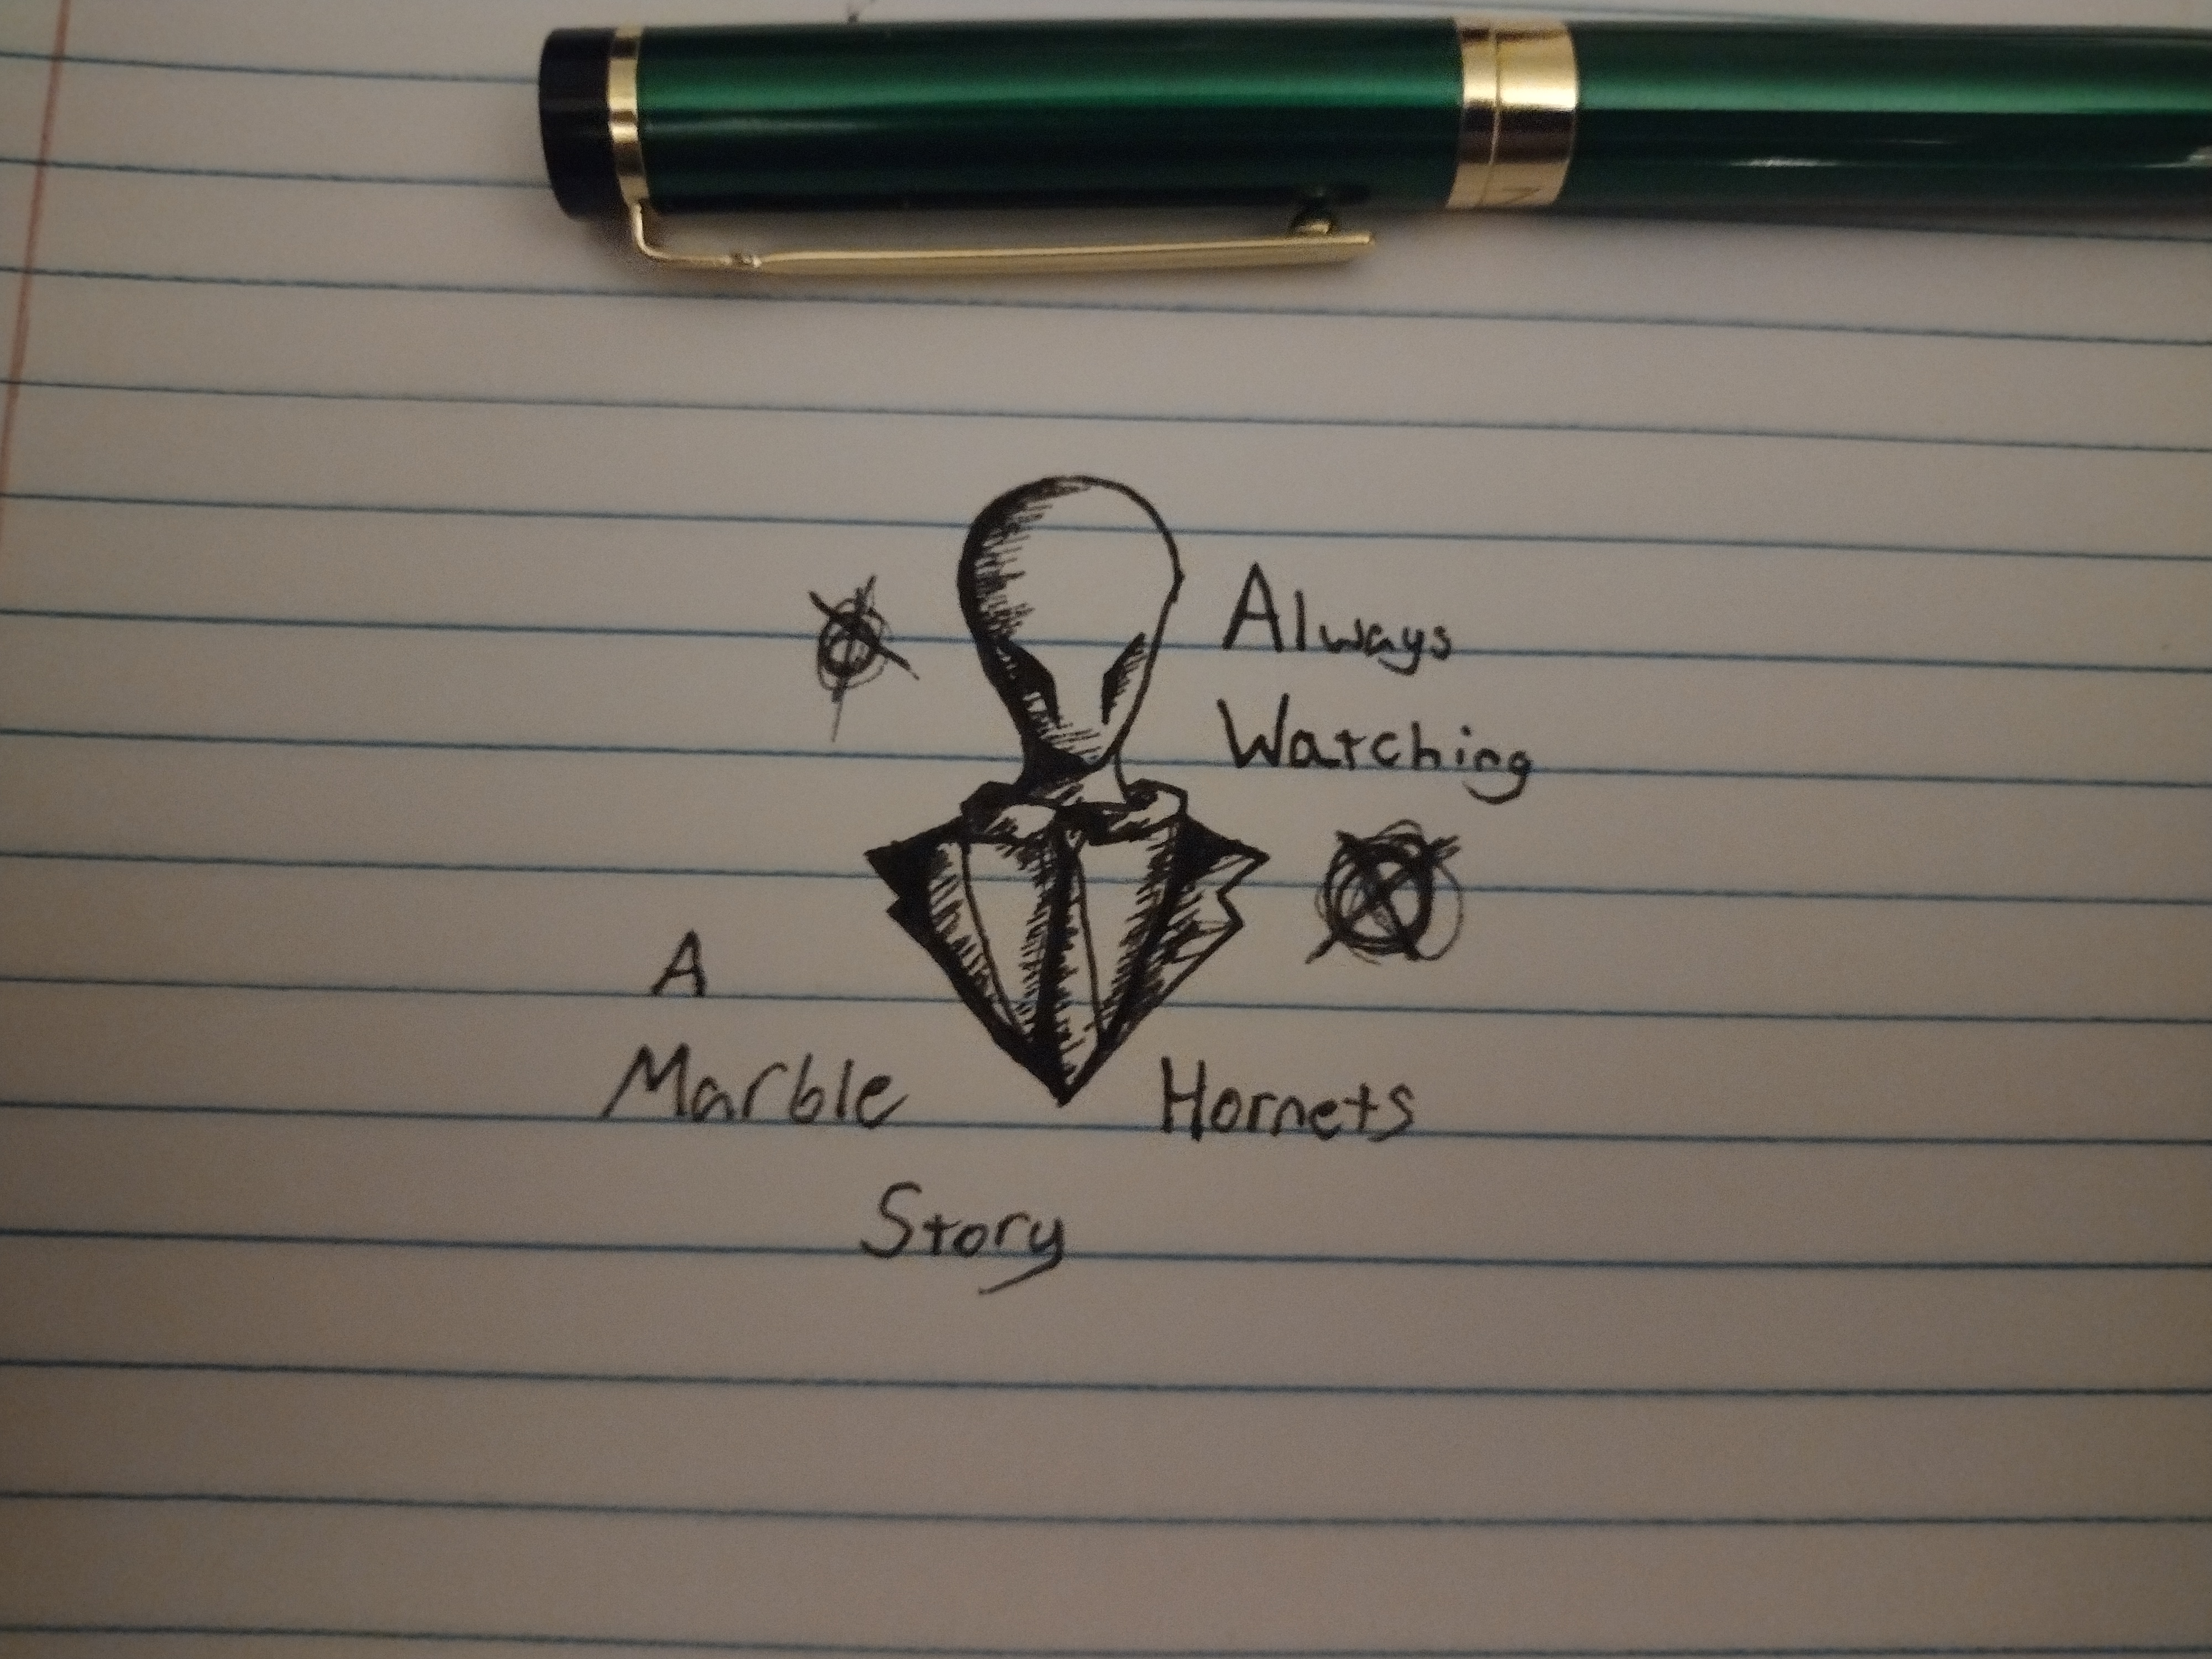 Always
Watching
A
Marble Hornets
Story